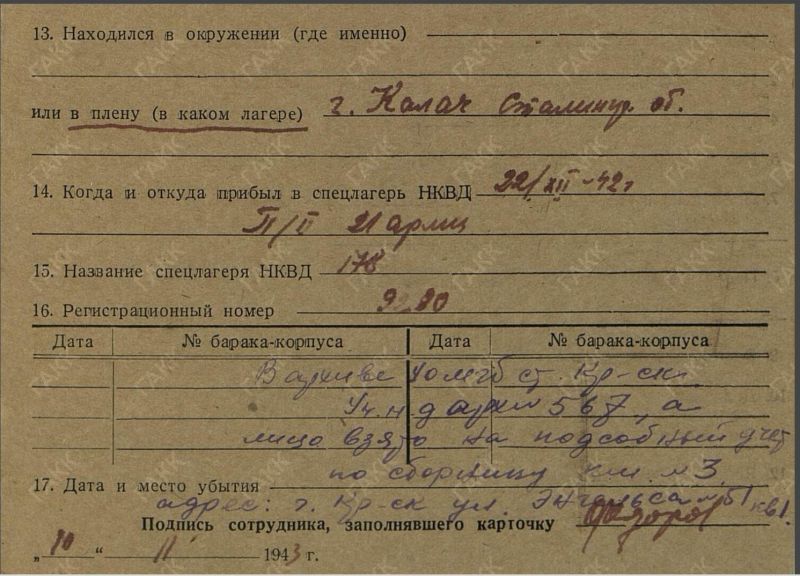 13. Находился в окружении (где именно)
или в плену (в каком лагере) г. Калач Сталингр. об.
14. Когда и откуда прибыл в спецлагерь НКВД 22/XII-42 г
П/П 21 армии
15. Название спецлагеря НКВД 178
16. Регистрационный номер
Дата № барака-корпуса Дата № барака-корпуса
В архиве
567, а
лицо взято на подсобный учет
по сборнику №3
17. Дата и место убытия
адрес: г. Кр-ск ул. Энгельса кв 1.
Подпись сотрудника, заполнявшего карточку
„10“ 11 1943 г.
ГАКК